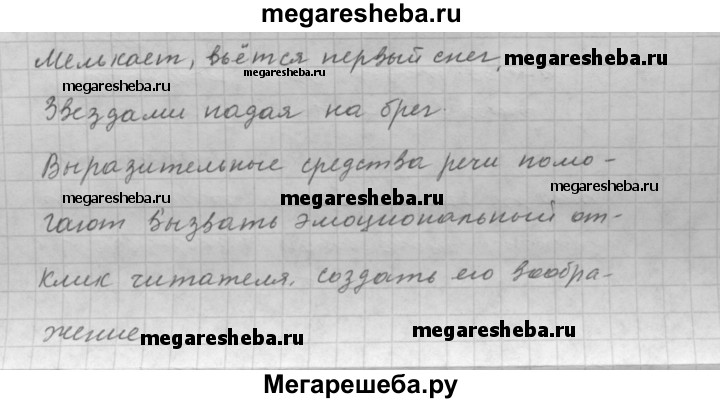 megaresheba.ru
Мелькает, вьётся первый снег, megaresheba.ru
megaresheba.ru
megaresheba.ru
Звездами падая на брег.
Выразительные средства речи помо-
megaresheba.ru megaresheba.ru megaresheba.ru
гают вызвать эмоциональный от-
клик читателя, создать его вообра-
жение megaresheba.ru megaresheba.ru
Мегарешеба.ру